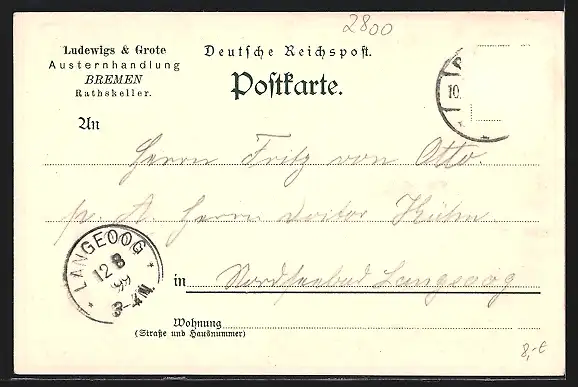 2800
Ludewigs & Grote
Austernhandlung
BREMEN
Rathskeller.
Deutsche Reichspost.
Postkarte.
10.
An
Herrn Fritz von Otto.
p. A. Herrn Doctor Kühn
LANGEOOG
12 8
99
3-4N.
in Nordseebad Langeoog
Wohnung
(Straße und Hausnummer)
8,-€